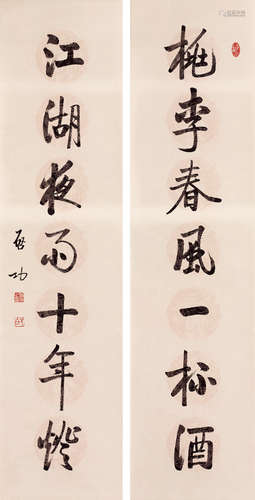 桃李春風一杯酒
江湖夜雨十年燈
啟功